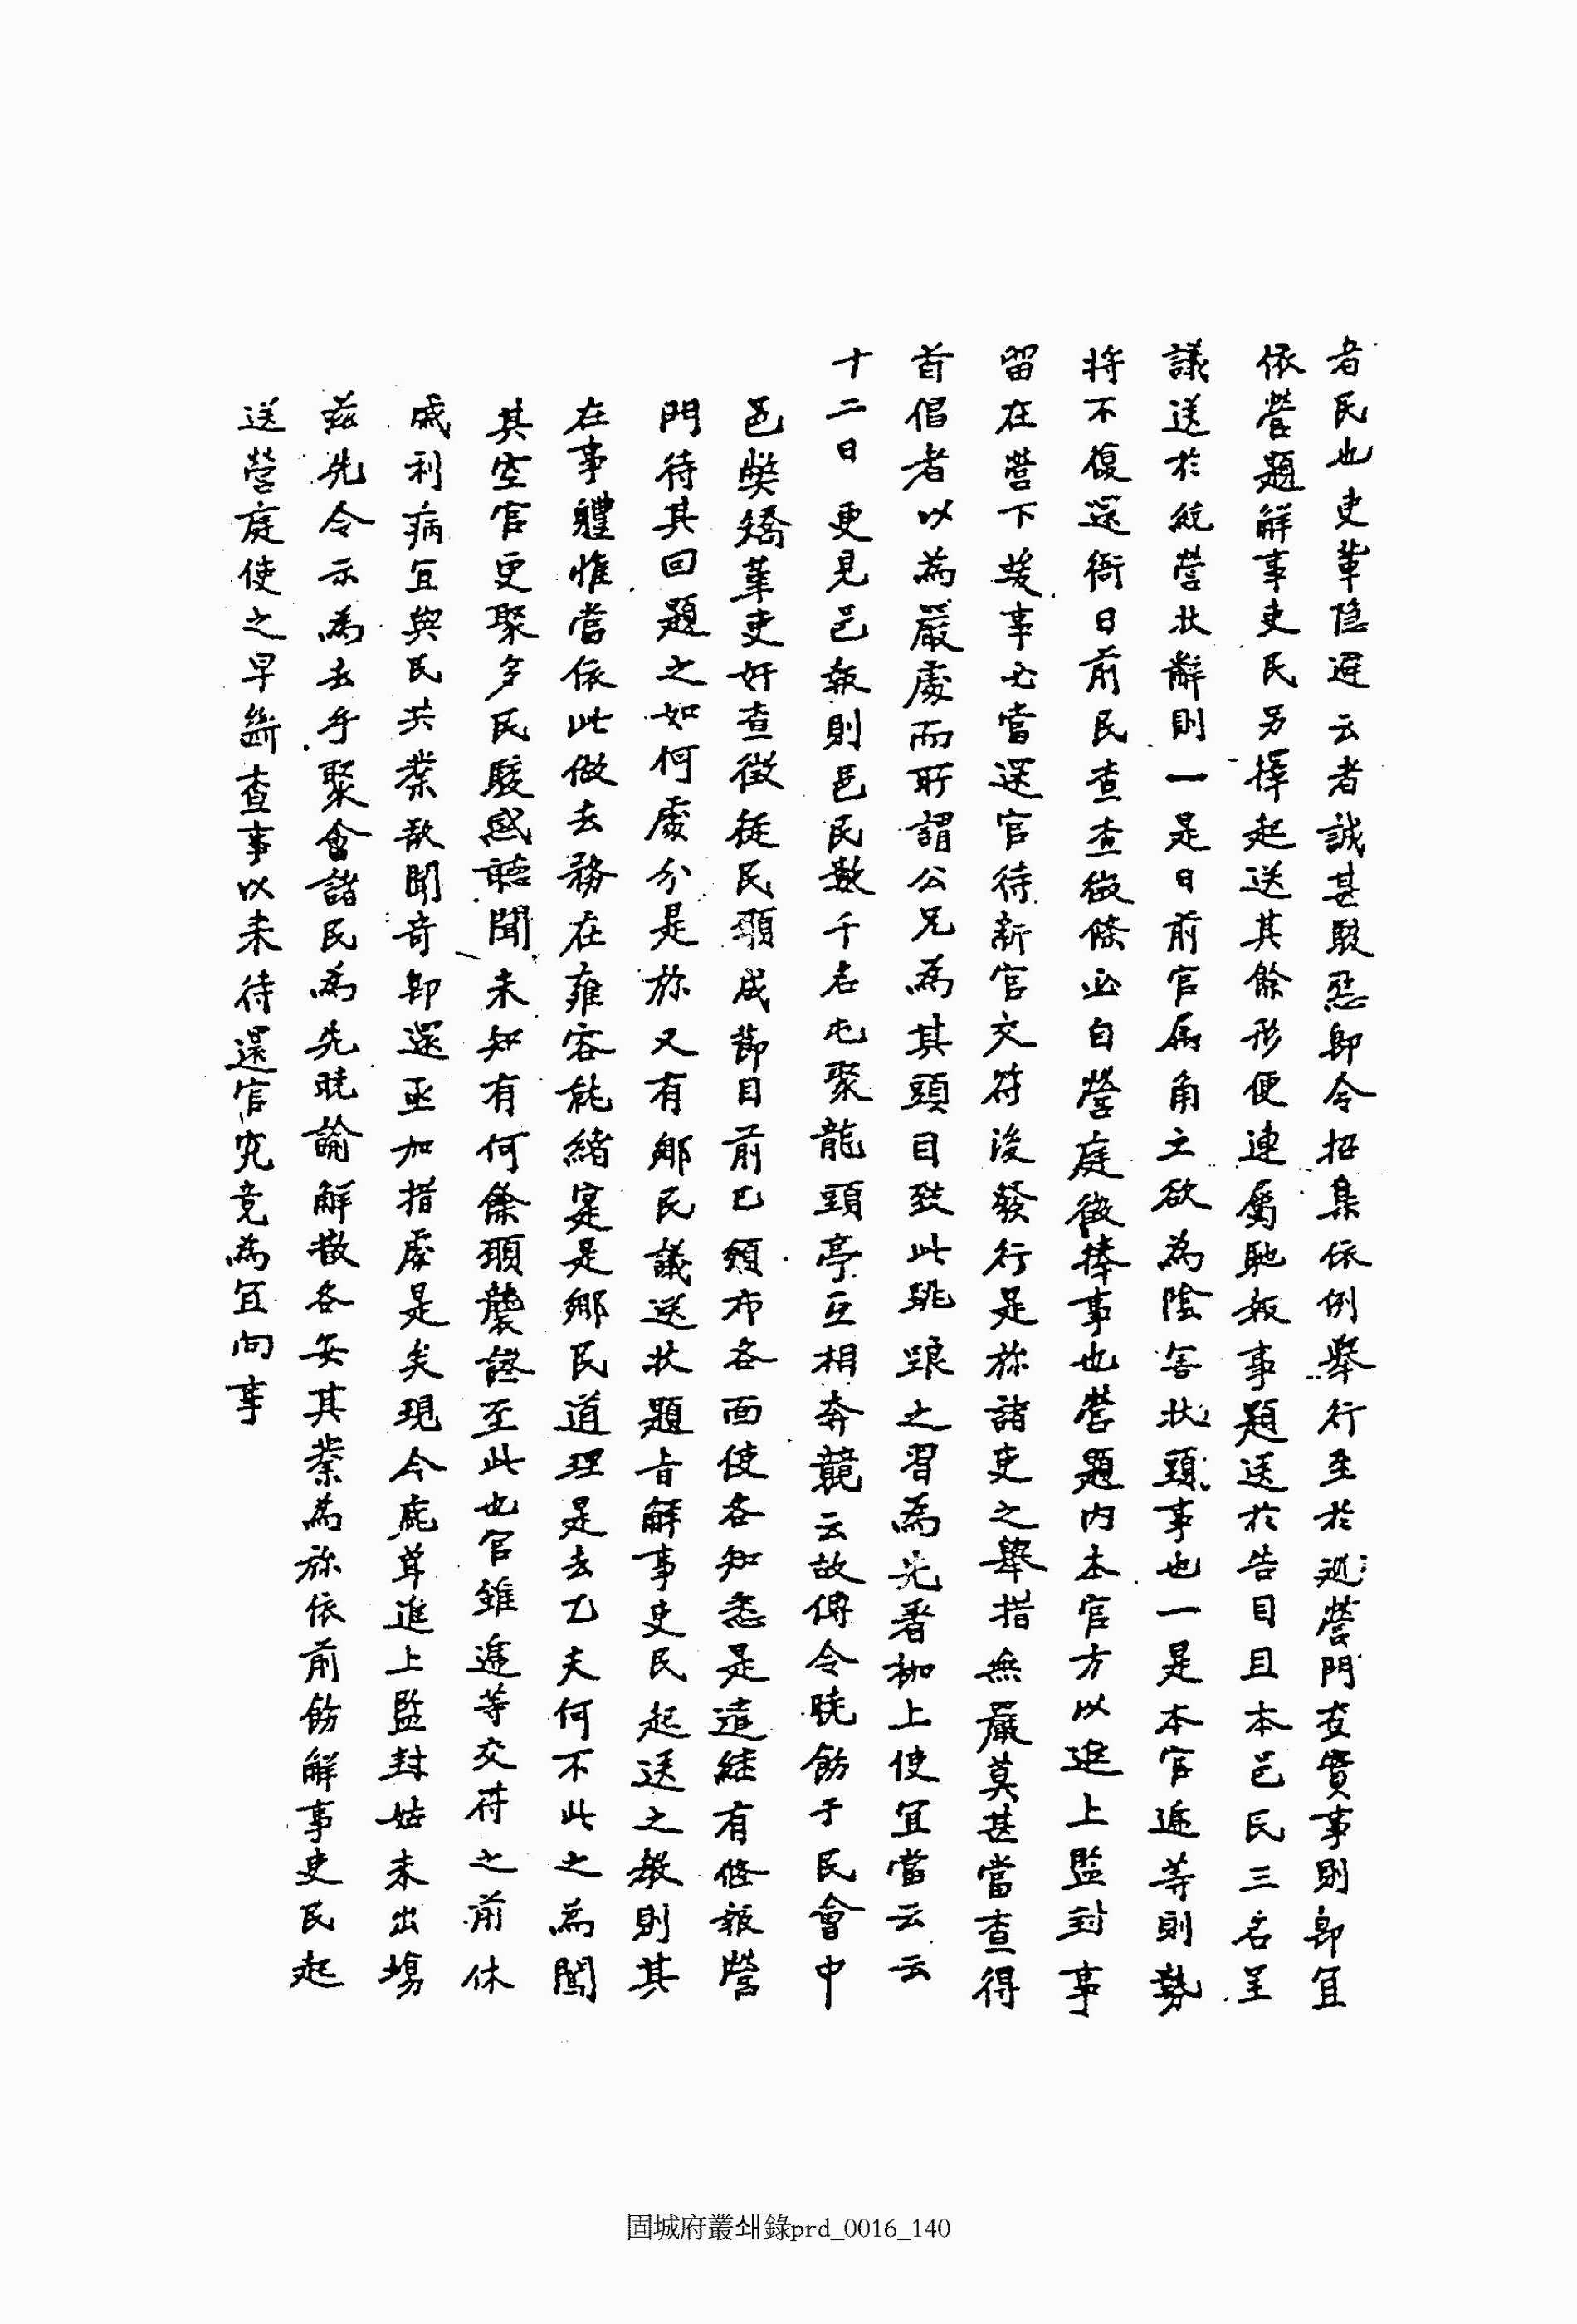 者民也吏輩隐避云者誠甚駭惡卽令招集依例擧行至於巡營門査實事則卽宜
依營題解事吏民另擇起送其餘形便連屬馳報事題送於告目且本邑民三名呈
議送於統營狀辭則一是日前官属角立欲為陰害狀頭事也一是本官遞等則勢
將不復還衙日前民查查徵條必自營庭徵捧事也營題内本官方以進上監封事
留在營下竣事必當還官待新官交符後發行是旀諸吏之擧措無嚴莫甚當查得
首倡者以為嚴處而所謂公兄為其頭目致此跳踉之習為先着枷上使宜當云云
十二日更見邑報則邑民數千名屯聚龍頭亭互相奔競云故傳令曉飭于民會中
邑獘矯革吏奸查徵従民願成節目前已頒布各面使各知悉是遣継有修報營
門待其回題之如何處分是旀又有鄕民議送狀題旨解事吏民起送之教則其
在事軆惟當依此做去務在雍容就緖寔是鄕民道理是去乙夫何不此之為闖
其空官更聚多民駭惑聽聞未知有何餘願曩證至此也官雖遞等交符之前休
戚利病宜與民共業故聞竒卽還亟加措處是矣現今鹿茸進上監封姑未出塲
玆先令示為去乎聚會諸民為先曉諭解散各安其業為旀依前飭解事吏民起
送營庭使之早斷查事以未待還官究竟為宜向事
固城府叢쇄錄prd_0016_140